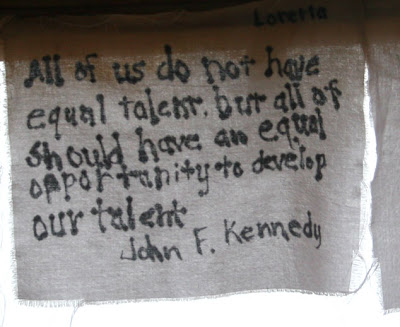 Loretta
All of us do not have
equal talent. but all of
should have an equal
opportunity to develop
our talent
John F. Kennedy